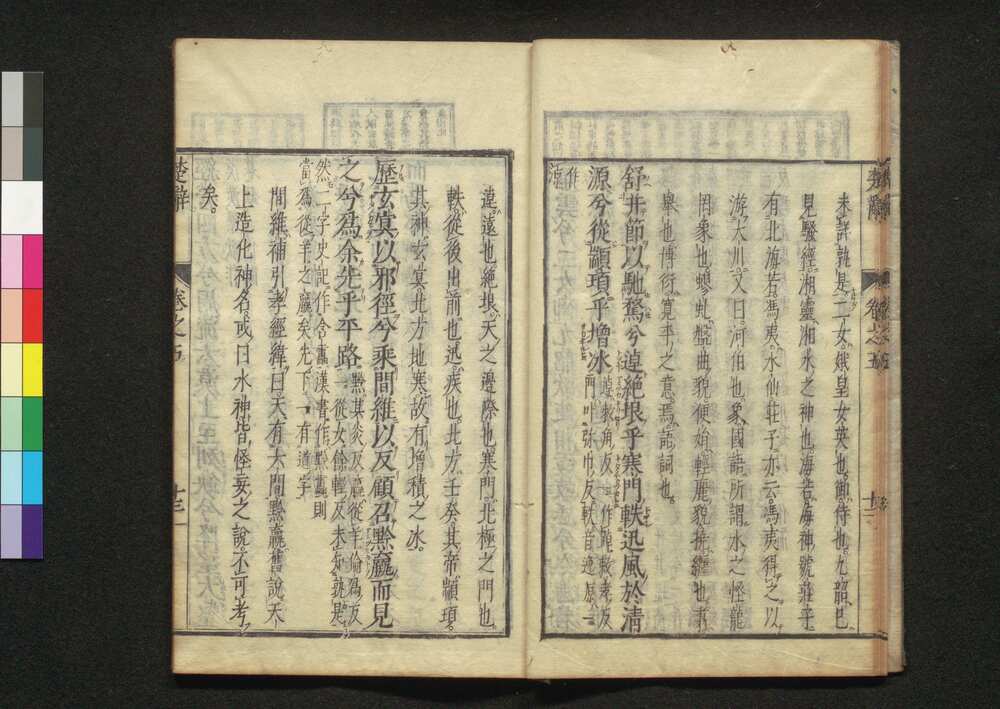 未詳孰是二女娥皇女英也御侍也九韶已
見騷經湘靈湘水之神也海若海神號莊子
有北海若馮夷水仙莊子亦云馮夷得之以
游大川又曰河伯也象國語所謂水之怪龍
罔象也蟉虬盤曲貌便娟輕麗貌撓纏也翥
舉也博衍寬平之意焉語詞也
舒并節以馳騖兮逴絕垠乎寒門軼迅風於清
源兮從顓頊乎增冰
逴敕角反一作踔敕孝反
門叶彌巾反軼音逸原一
作源
楚辭 卷之五 十二
逴遠也絕垠天之邊際也寒門北極之門也
軼從後出前也迅疾也北方壬癸其帝顓頊
其神玄冥北方地寒故有增積之冰
歷玄冥以邪徑兮乘間維以反顧召黔羸而見
之兮為余先乎平路
黔其炎反羸從羊倫為反
一從女餘輕反未知孰是
然二字史記作含靁漢書作黔靁則
當為從羊之羸矣先下一有道字
間維補引孝經緯曰天有六間黔羸舊說天
上造化神名或曰水神皆怪妄之說不可考
矣
楚辭 卷之五 十三